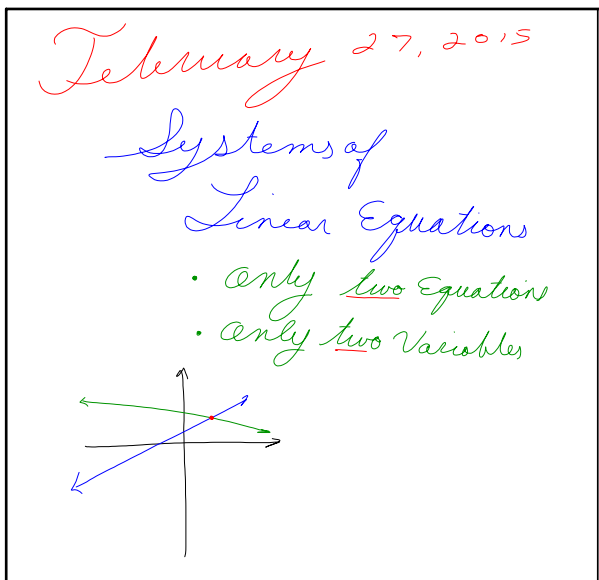 February 27, 2015
Systems of
Linear Equations
• Only two Equations
• Only two Variables